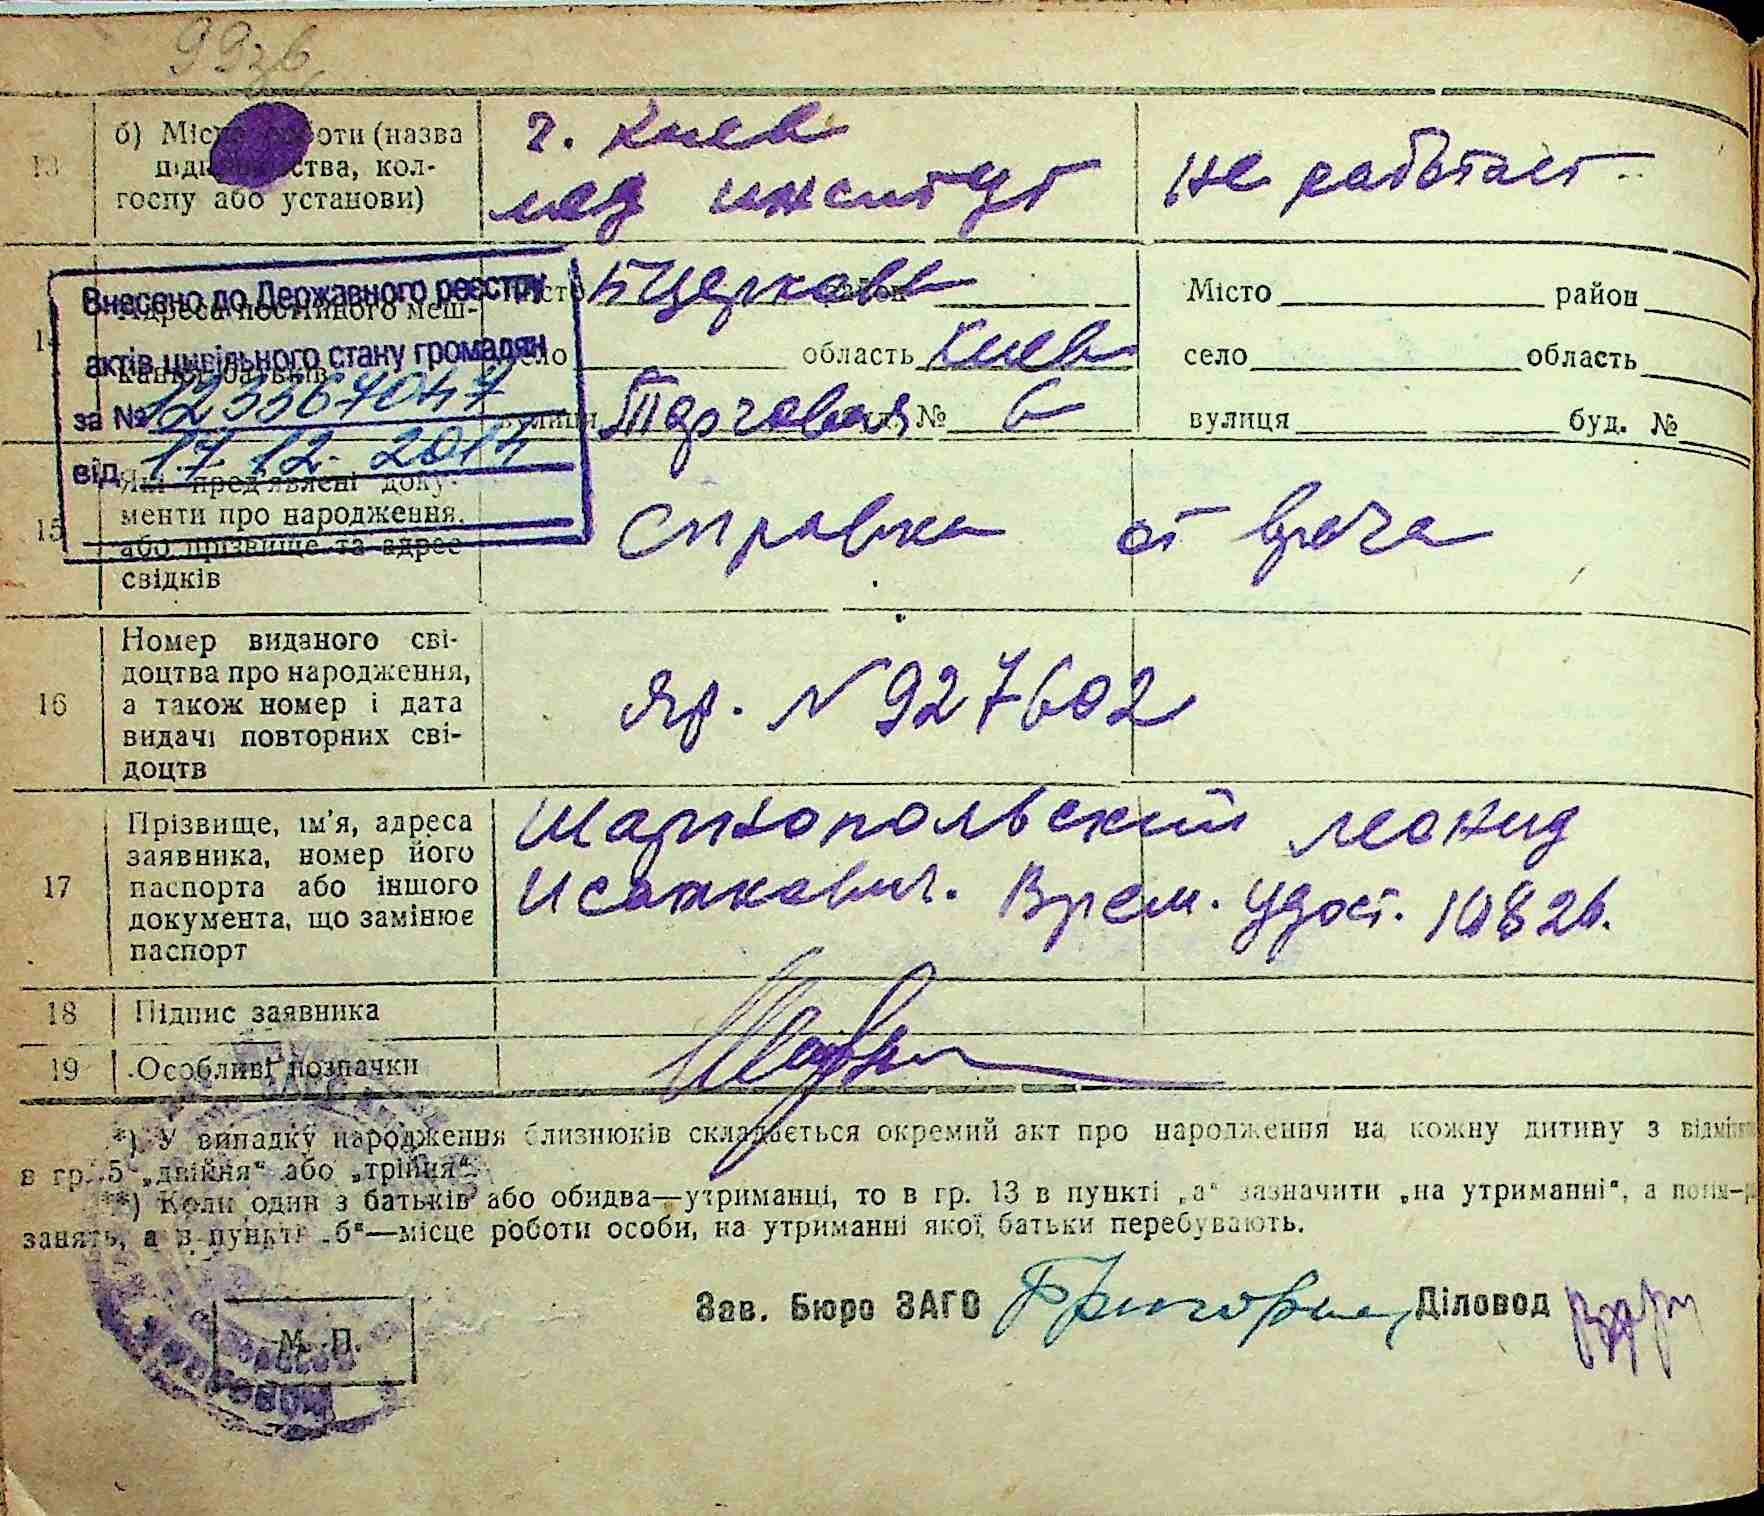 13 б) Місце роботи (назва
підприємства, кол-
госпу або установи)
г. Киев
мед институт
не работает
Внесено до Державного реєстру
актів цивільного стану громадян
за №
від 17. 12. 2014
14 Адреса постійного меш-
кання батьків
Місто БЦерковь район
село область Киев
вулиця Торговая буд. № 6
Місто район
село область
вулиця буд. №
15 Які пред'явлені доку-
менти про народження,
або прізвище та адрес
свідків
Справка от врача
16 Номер виданого сві-
доцтва про народження,
а також номер і дата
видачі повторних сві-
доцтв
N 927602
17 Прізвище, ім'я, адреса
заявника, номер його
паспорта або іншого
документа, що замінює
паспорт
Шаргопольский Леонид
Исаакович. Врем. удост.
18 Підпис заявника
19 Особливі позначки
*) У випадку народження близнюків складається окремий акт про народження на кожну дитину з
в гр. 5 „двійня“ або „трійня“.
**) Коли один з батьків або обидва—утриманці, то в гр. 13 в пункті „а“ зазначити „на утриманні“, а
занять, а в пункті „б“—місце роботи особи, на утриманні якої батьки перебувають.
Зав. Бюро ЗАГС
Діловод
М. П.